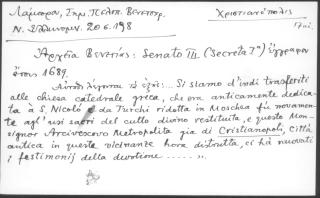 Λάμπρου, Σημ. Πελοπ. Βενετοκρ.
Χριστιανούπολις
Ν. Ἑλληνομν. 20 σ. 198
Ἀρχεῖα Βενετίας: Senato III. (Secreta 7ª) ἔγγραφον
ἔτους 1689.
Si siamo d'indi trasferiti
alle chiesa catedrale greca, che era anticamente dedica-
ta à S. Nicolò e da Turchi ridotta in Moschea fù novamente
agl'usi sacri del culto divino restituita, e questo Mon-
signor Arcivescovo Metropolita gia di Cristianopoli, Città
antica in queste vicinanze hora distrutta, ci há rinovati
i testimonij della devotione ...... ».